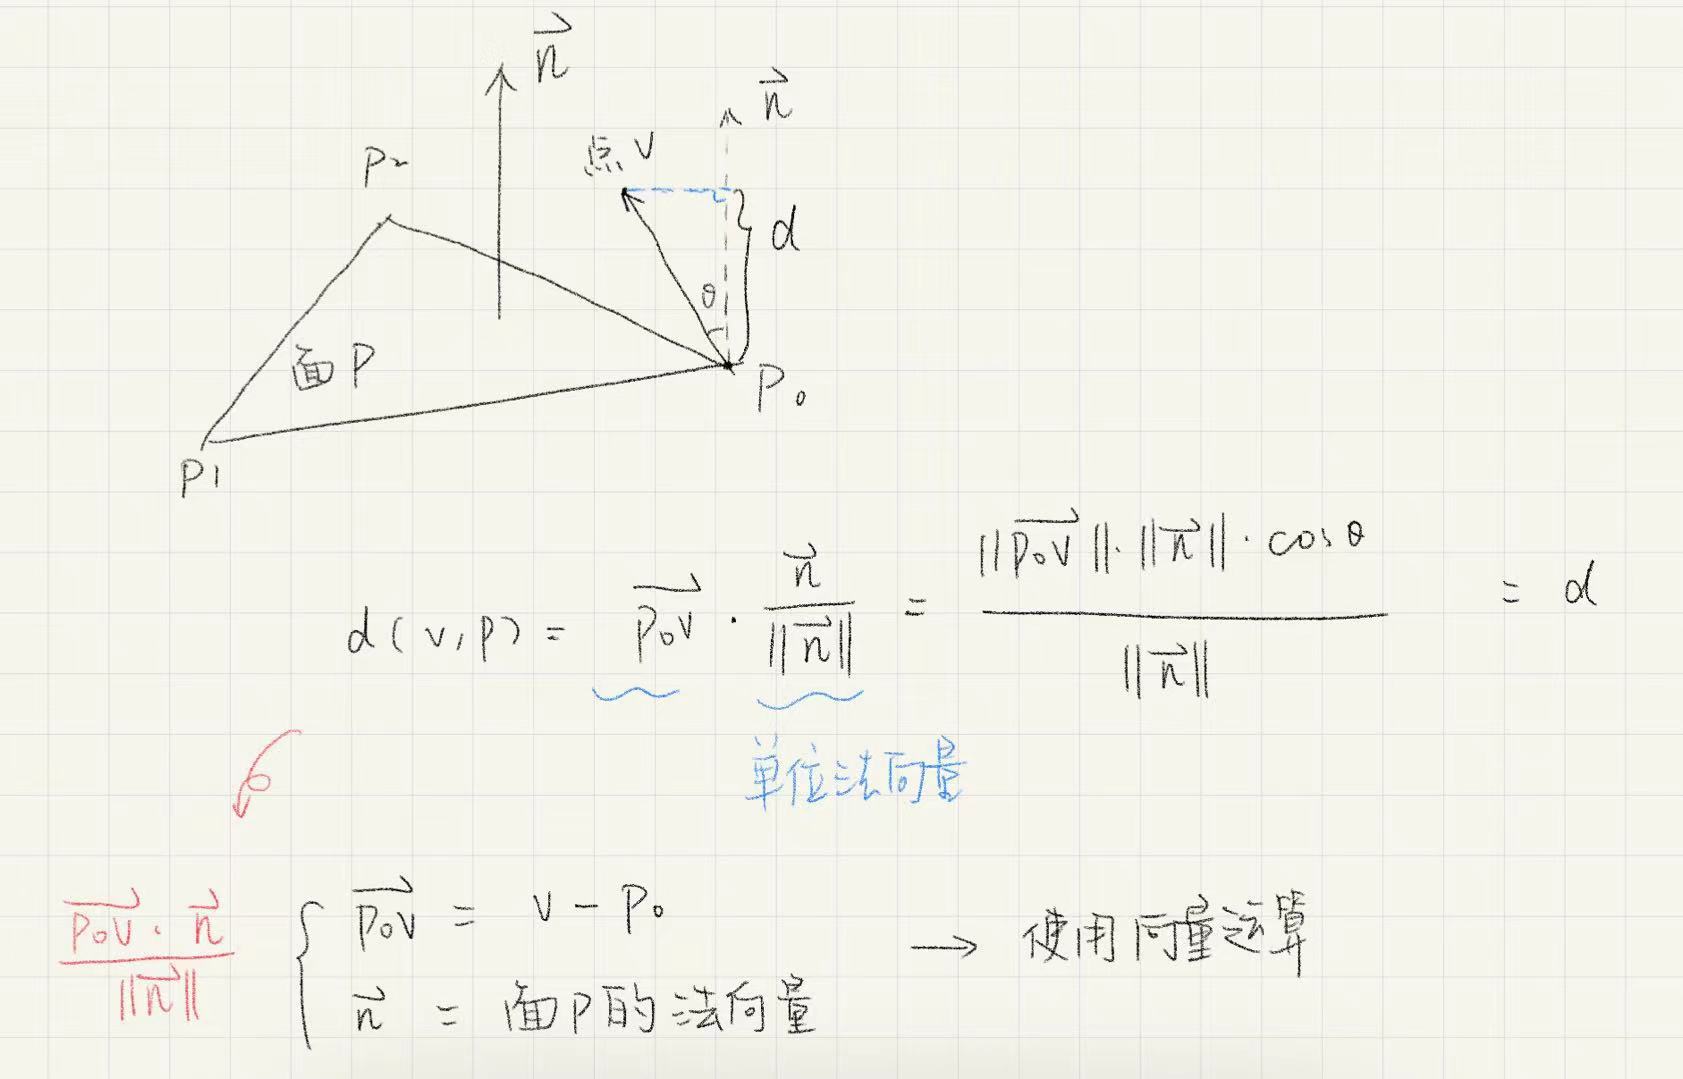 n⃗
n⃗
点 v
P₂
d
θ
面 P
P₀
P1
d(v,p) = P₀v⃗ · n⃗/||n⃗|| = ||P₀v⃗||·||n⃗||·cosθ / ||n⃗|| = d
单位法向量
P₀v⃗ · n⃗ / ||n⃗||
{ P₀v⃗ = v - P₀ → 使用向量运算
n⃗ = 面P的法向量